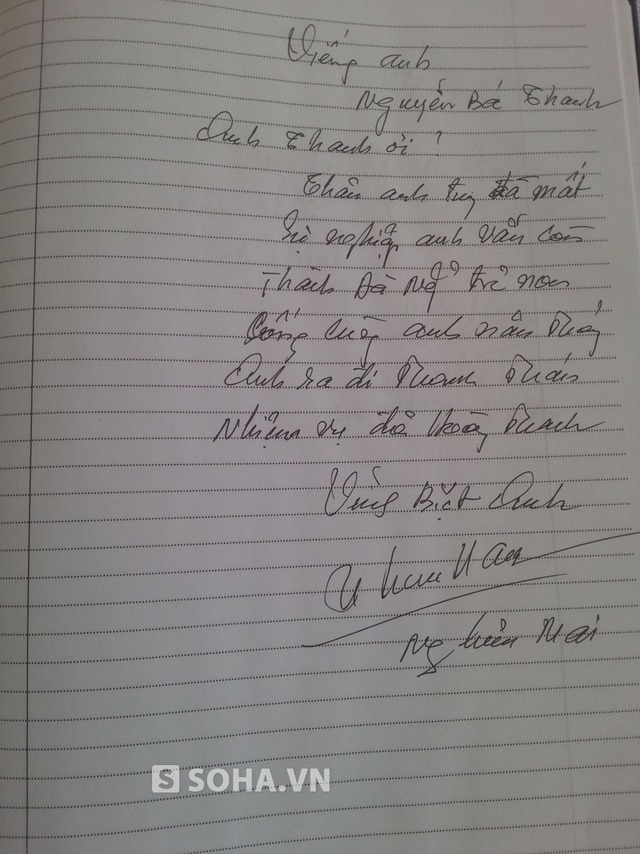 Viếng anh
Nguyễn Bá Thanh
Anh Thanh ơi?
Thân anh tuy đã mất
Sự nghiệp anh vẫn còn
Thành Đà Nẵng trẻ non
Công anh năm tháng
Anh ra đi thanh thản
Nhiệm vụ đã hoàn thành
Vĩnh Biệt Anh
SOHA.VN